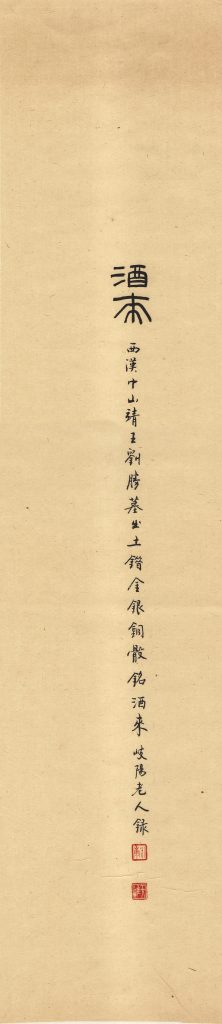 酒来
西漢中山靖王劉勝墓出土錯金銀銅骰銘酒来岐陽老人録